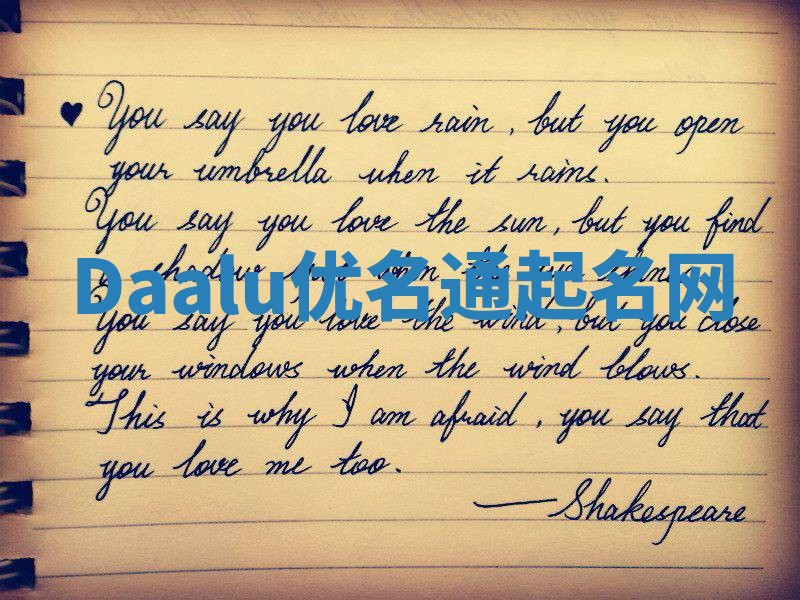 ♥ You say you love rain, but you open
your umbrella when it rains.
You say you love the sun, but you find
a shadow when the sun shines.
Daalu优名通起名网
You say you love the wind, but you close
your windows when the wind blows.
This is why I am afraid, you say that
you love me too.
—Shakespeare